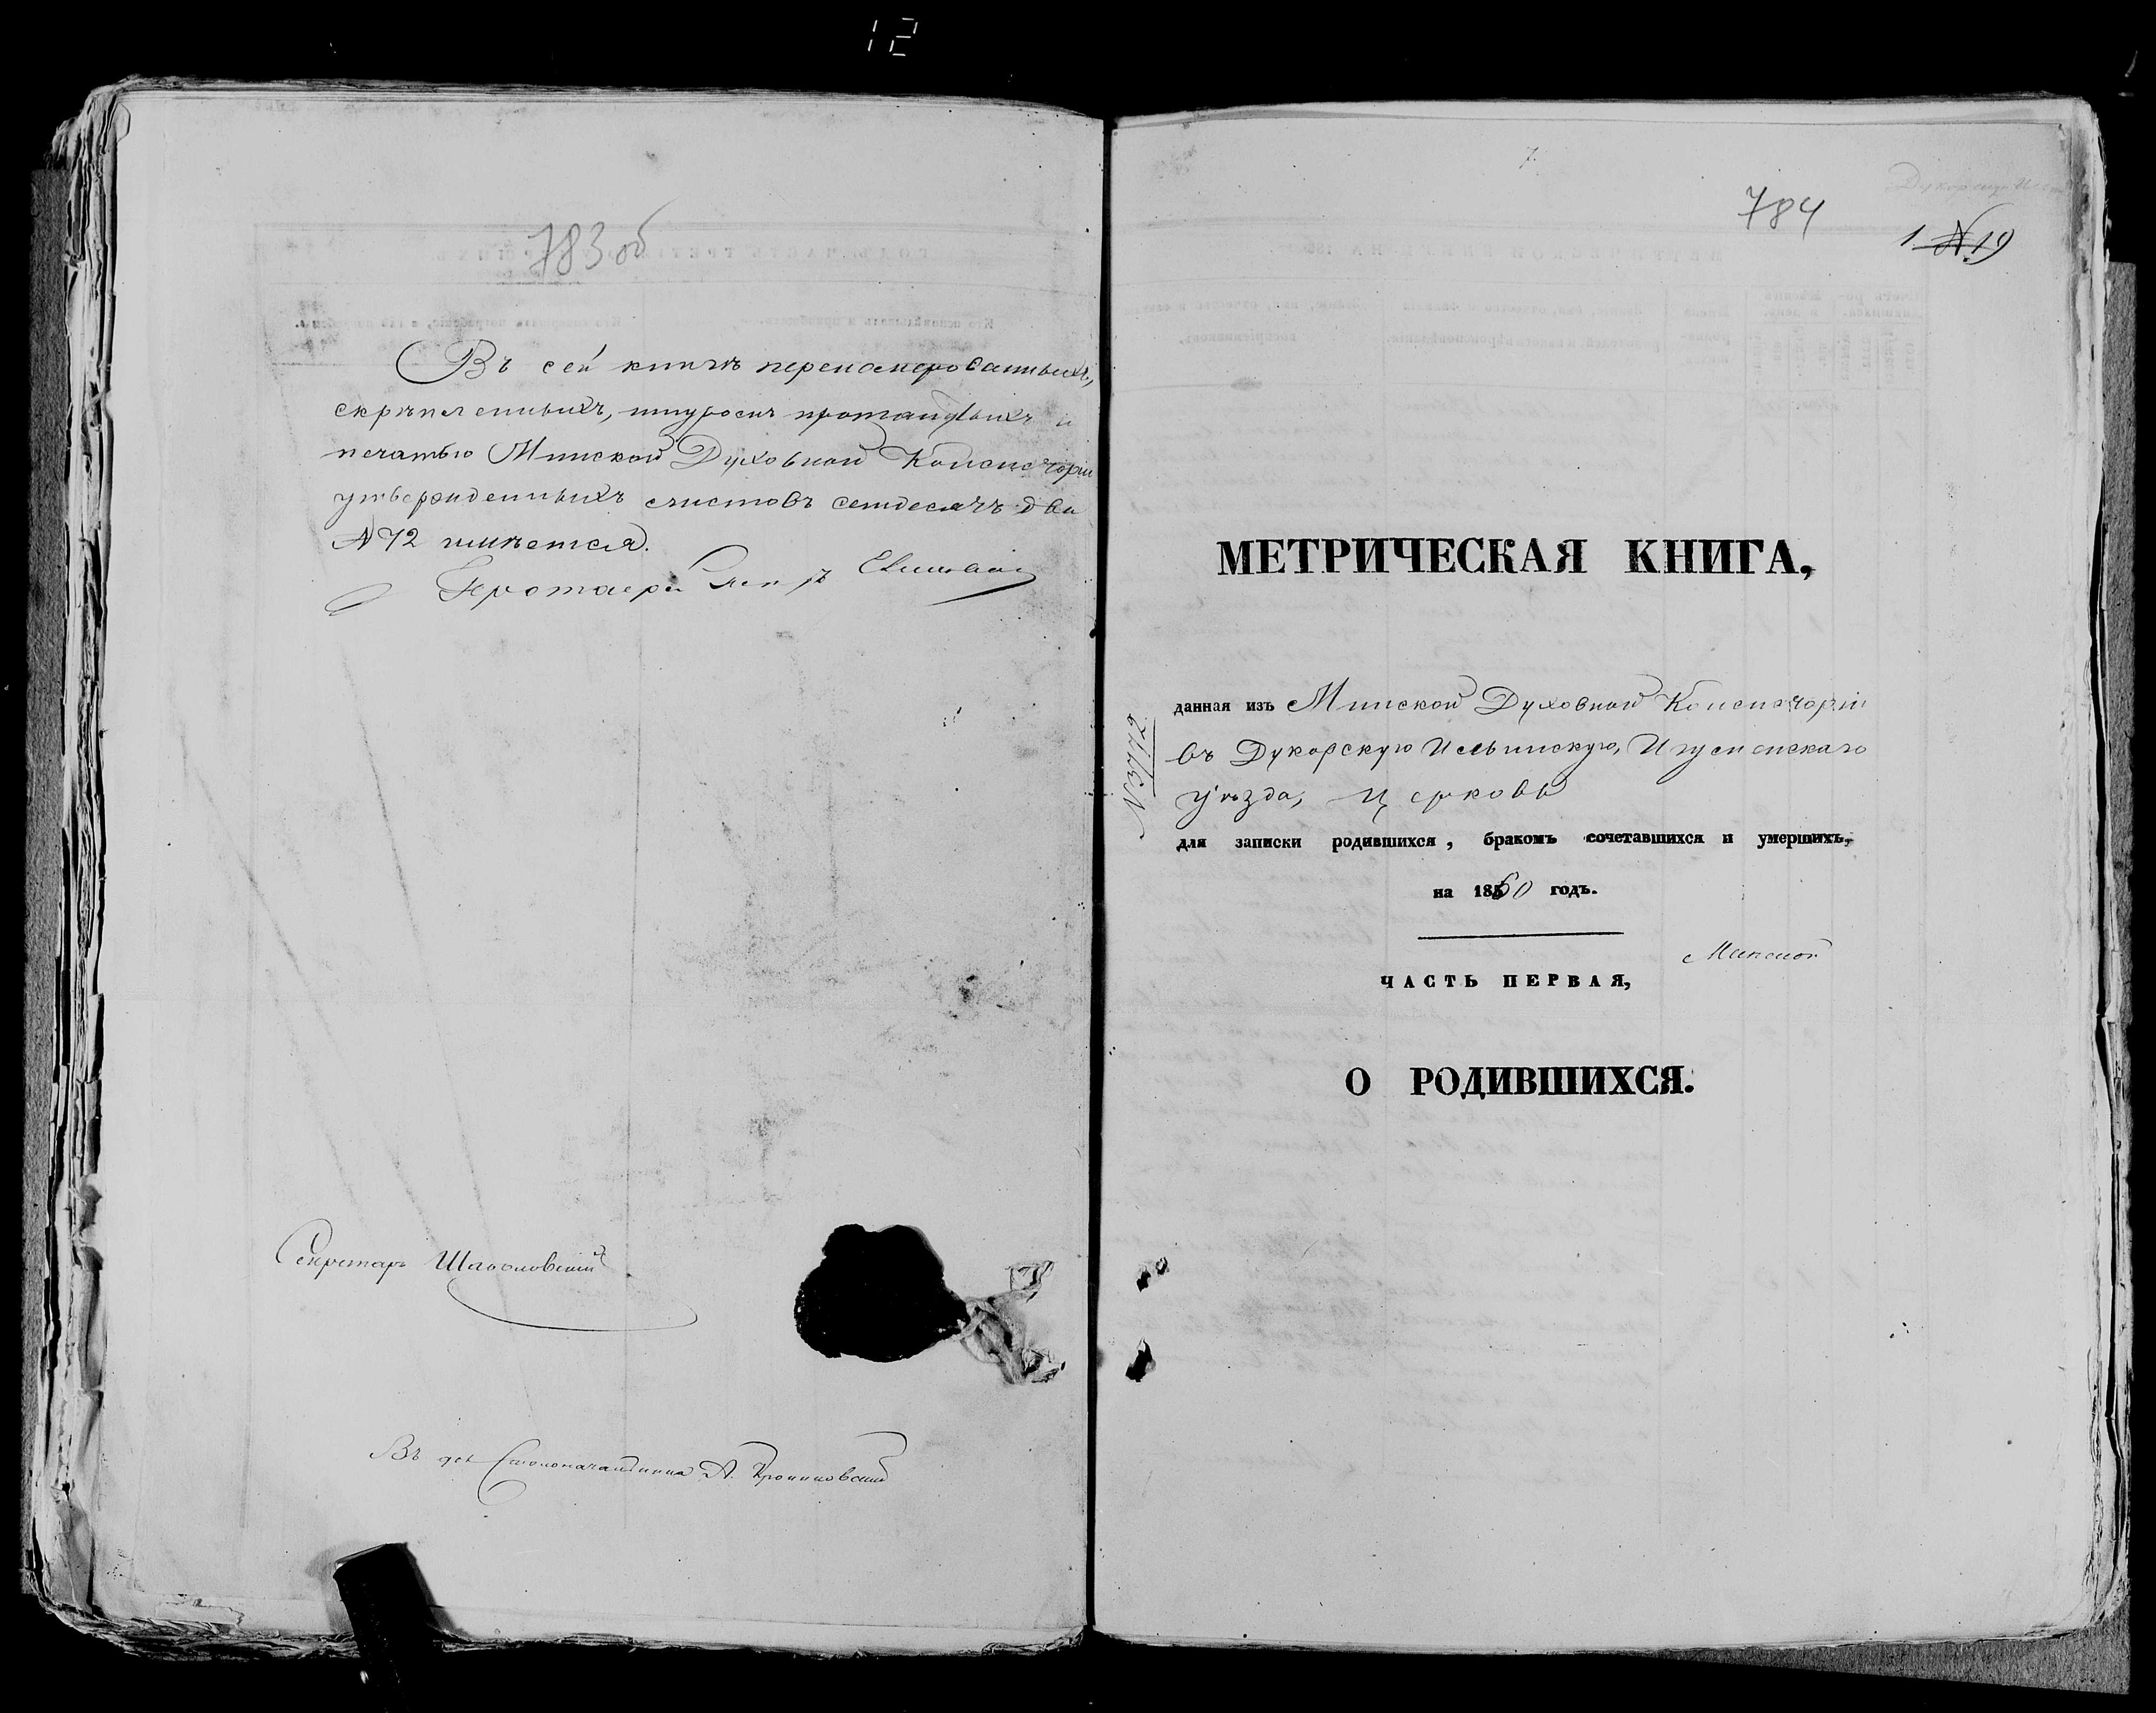 12
783 об
Въ сей книгѣ переномерованныхъ,
скрѣпленныхъ, шнуромъ
печатью Минской Духовной Консисторіи
утвержденныхъ листовъ семдесятъ два
№ 72 имѣется.
Протоіерей
Секретарь
Въ дол. Столоначальника А.
7.
784
1 № 19
МЕТРИЧЕСКАЯ КНИГА,
данная изъ Минской Духовной Консисторіи
въ Дукорскую Ильинскую, Игуменскаго
уѣзда, церковь
для записки родившихся, бракомъ сочетавшихся и умершихъ,
на 1860 годъ.
Минской
ЧАСТЬ ПЕРВАЯ,
О РОДИВШИХСЯ.